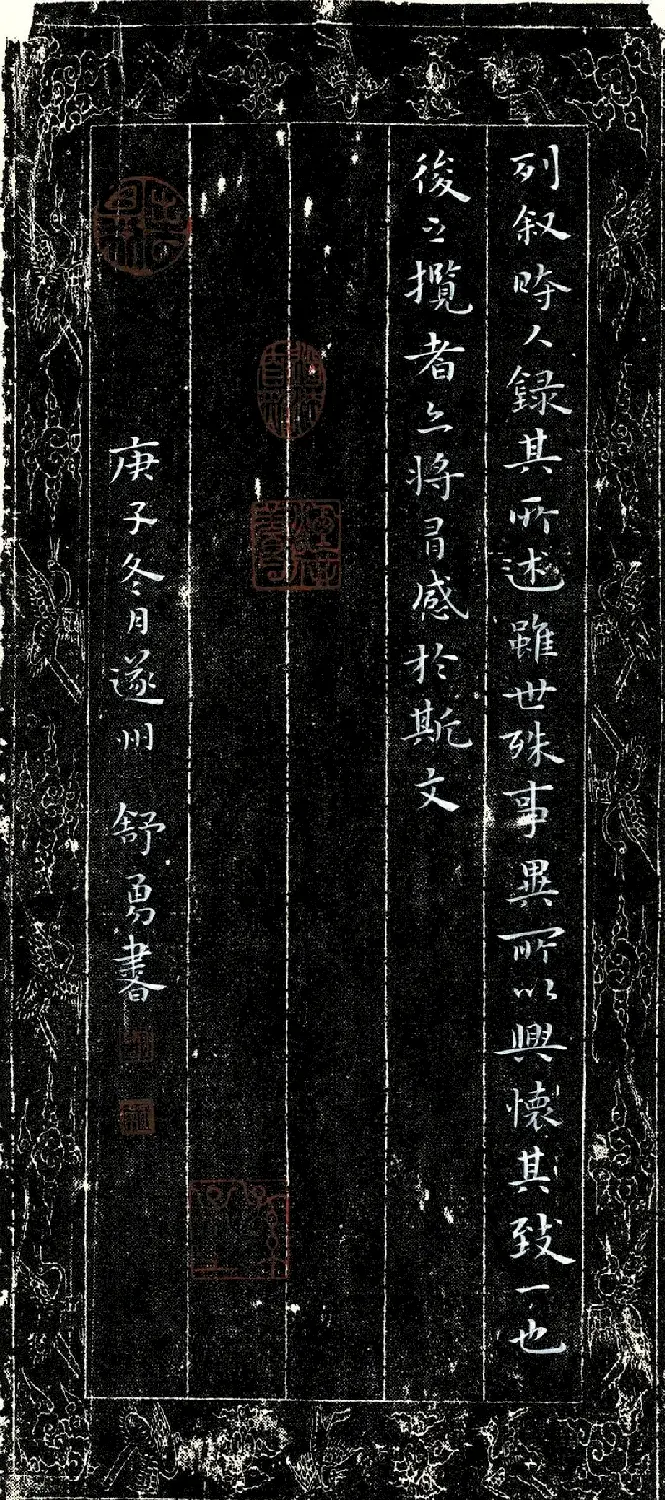 列叙時人録其所述雖世殊事異所以興懷其致一也
後之攬者亦将有感於斯文
庚子冬月遂州 舒勇書